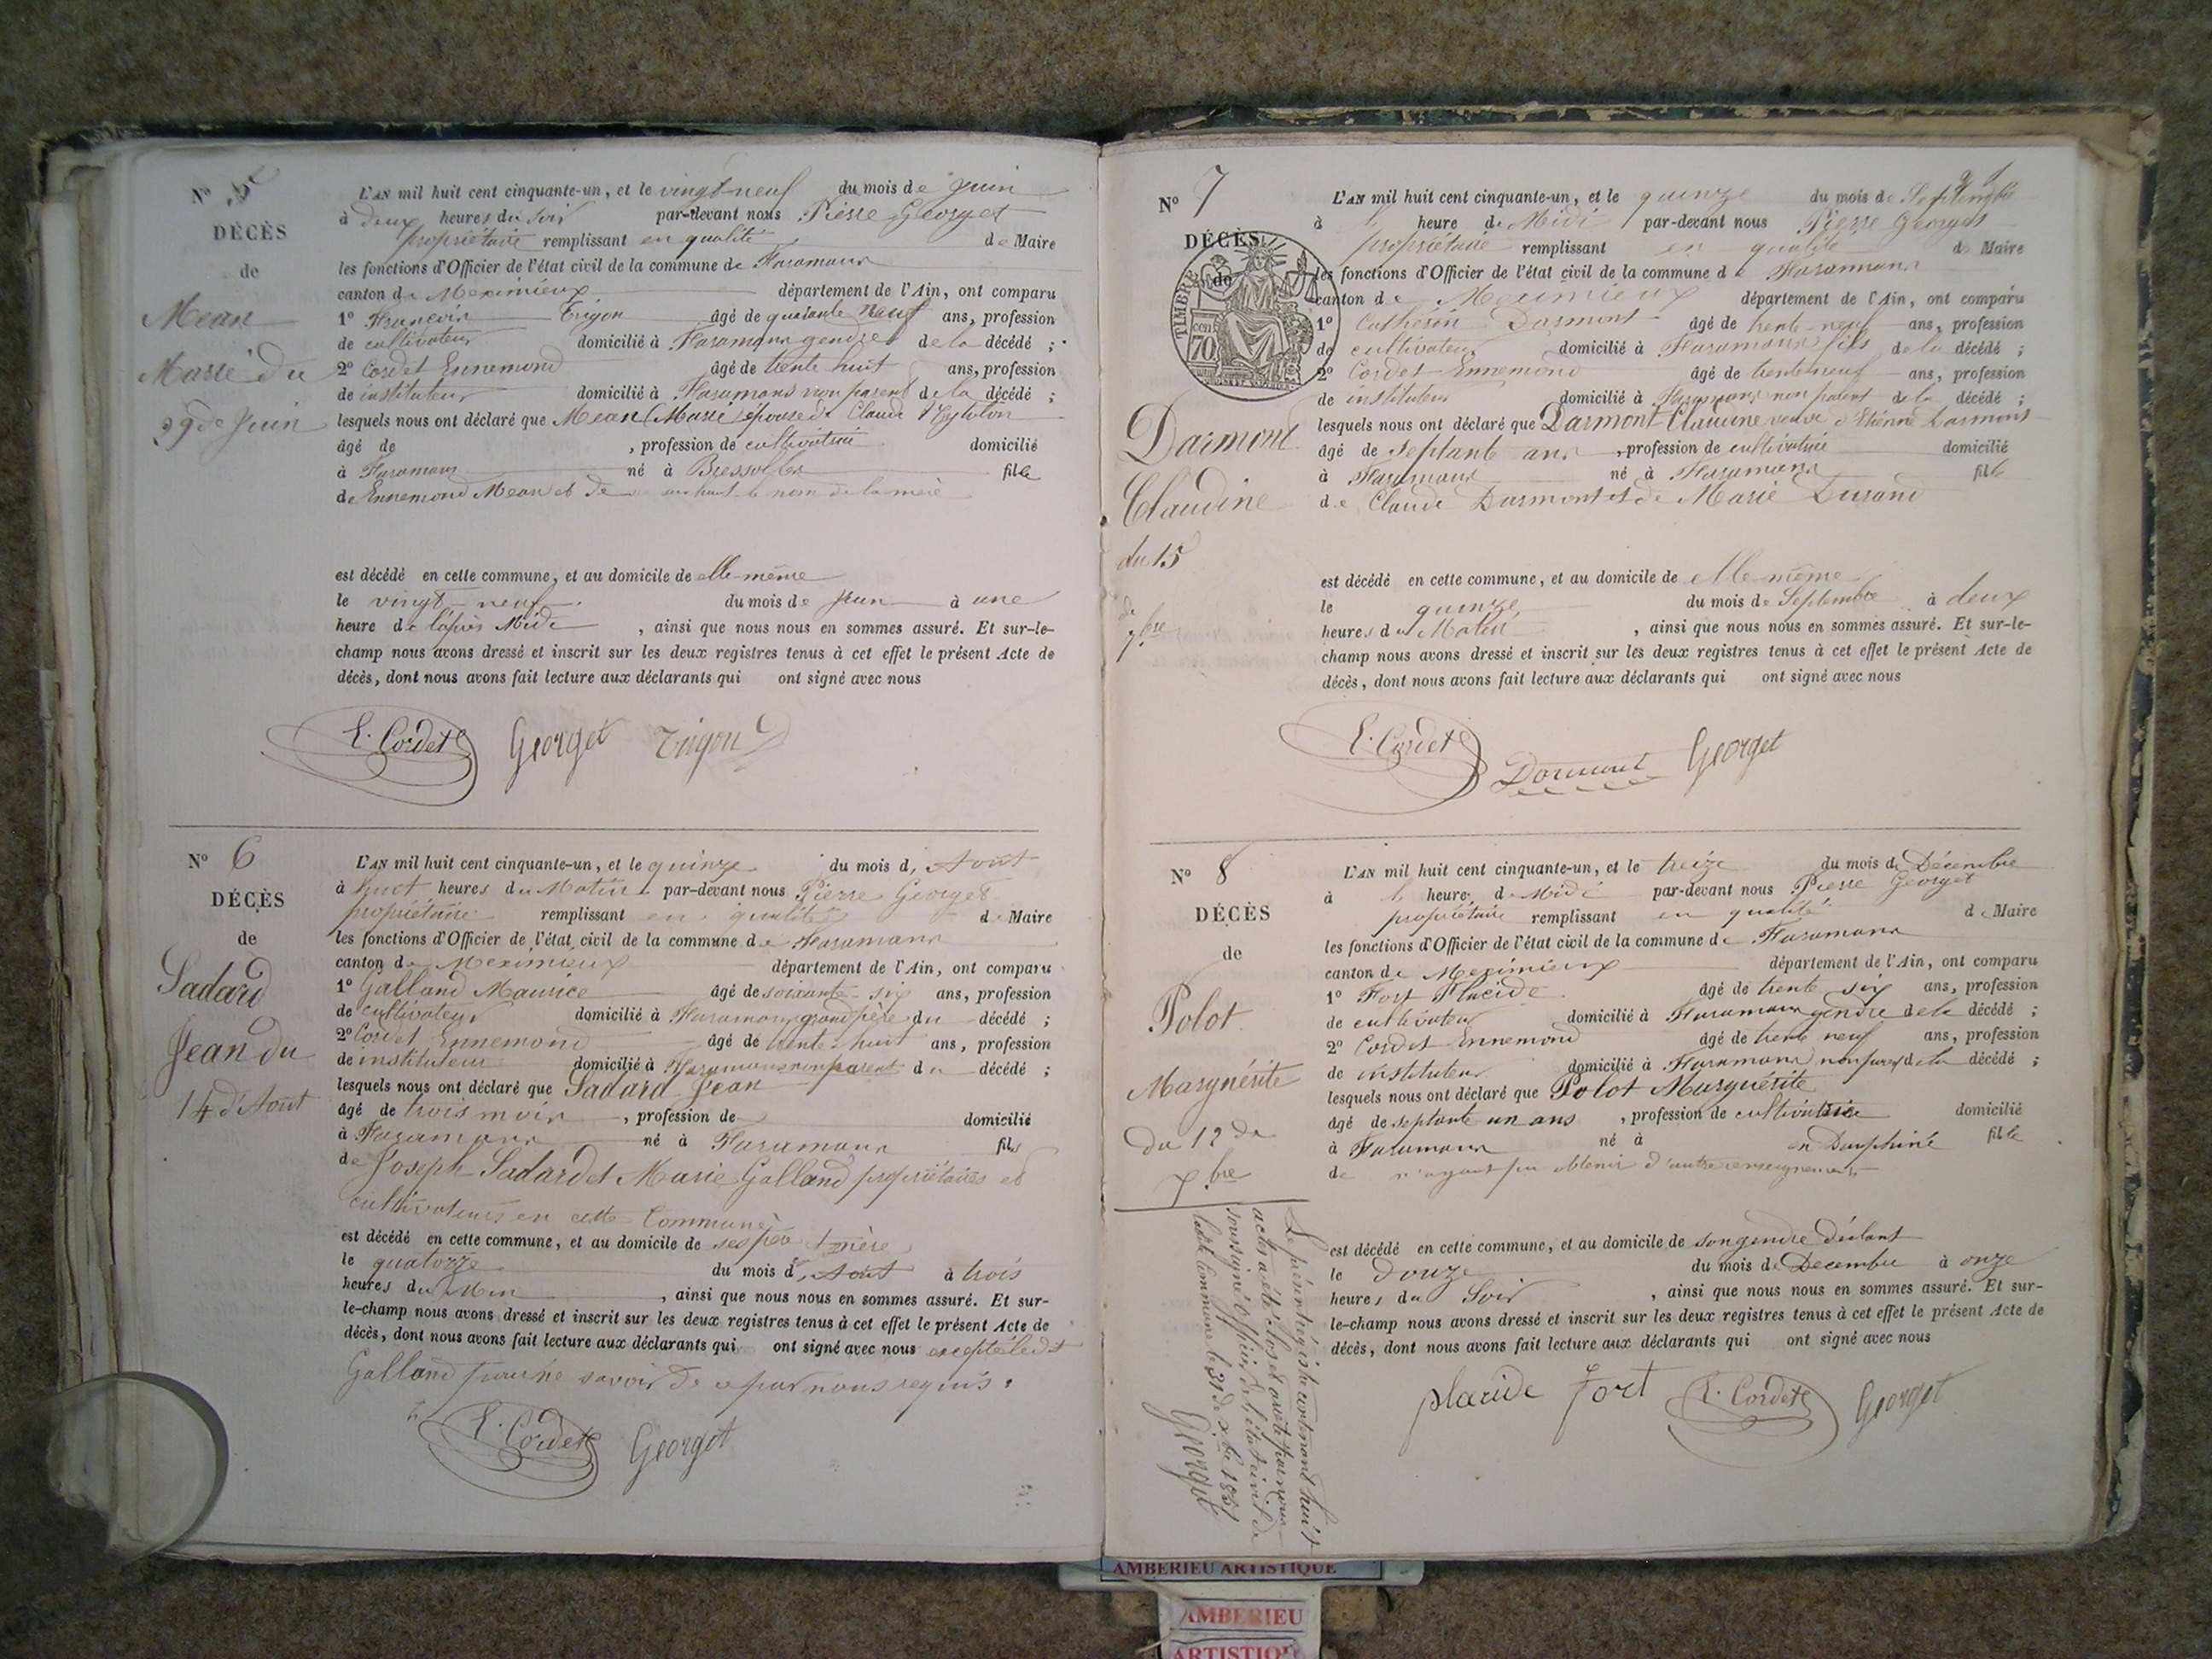 N° 5
DÉCÈS
de
Mean
Marie du
29 de Juin
L'AN mil huit cent cinquante-un, et le vingt-neuf du mois de Juin
à deux heures du soir par-devant nous Pierre Georget
propriétaire remplissant en qualité de Maire
les fonctions d'Officier de l'état civil de la commune de Faramans
canton de Meximieux département de l'Ain, ont comparu
1° François Trigon âgé de quarante neuf ans, profession
de cultivateur domicilié à Faramans gendre de la décédé ;
2° Cordet Ennemond âgé de trente huit ans, profession
de instituteur domicilié à Faramans non parent de la décédé ;
lesquels nous ont déclaré que Mean Marie épouse de Claude
âgé de , profession de cultivatrice domicilié
à Faramans né à Bressolles fille
de Ennemond Mean et de le nom de la mère
est décédé en cette commune, et au domicile de elle-même
le vingt-neuf du mois de Juin à une
heure de l'après Midi , ainsi que nous nous en sommes assuré. Et sur-le-
champ nous avons dressé et inscrit sur les deux registres tenus à cet effet le présent Acte de
décès, dont nous avons fait lecture aux déclarants qui ont signé avec nous
E. Cordet Georget Trigon
N° 6
DÉCÈS
de
Sadard
Jean du
14 d'Aout
L'AN mil huit cent cinquante-un, et le quinze du mois d'Aout
à huit heures du Matin par-devant nous Pierre Georget
propriétaire remplissant en qualité de Maire
les fonctions d'Officier de l'état civil de la commune de Faramans
canton de Meximieux département de l'Ain, ont comparu
1° Galland Maurice âgé de soixante-six ans, profession
de cultivateur domicilié à Faramans grand père du décédé ;
2° Cordet Ennemond âgé de trente-huit ans, profession
de instituteur domicilié à Faramans non parent du décédé ;
lesquels nous ont déclaré que Sadard Jean
âgé de trois mois , profession de domicilié
à Faramans né à Faramans fils
de Joseph Sadard et Marie Galland propriétaires et
cultivateurs en cette Commune
est décédé en cette commune, et au domicile de ses père et mère
le quatorze du mois d'Aout à trois
heures du , ainsi que nous nous en sommes assuré. Et sur-
le-champ nous avons dressé et inscrit sur les deux registres tenus à cet effet le présent Acte de
décès, dont nous avons fait lecture aux déclarants qui ont signé avec nous excepté ledit
Galland pour ne savoir de ce par nous requis.
E. Cordet Georget
N° 7
DÉCÈS
de
TIMBRE
70
Darmont
Claudine
du 15
de
7bre
L'AN mil huit cent cinquante-un, et le quinze du mois de Septembre
à heure de Midi par-devant nous Pierre Georget
propriétaire remplissant en qualité de Maire
les fonctions d'Officier de l'état civil de la commune de Faramans
canton de Meximieux département de l'Ain, ont comparu
1° Cathérin Darmont âgé de trente-neuf ans, profession
de cultivateur domicilié à Faramans fils de la décédé ;
2° Cordet Ennemond âgé de trente neuf ans, profession
de instituteur domicilié à Faramans non parent de la décédé ;
lesquels nous ont déclaré que Darmont Claudine veuve d'Etienne Darmont
âgé de septante ans , profession de cultivatrice domicilié
à Faramans né à Faramans fille
de Claude Darmont et de Marie Durand
est décédé en cette commune, et au domicile de elle-même
le quinze du mois de Septembre à deux
heures du Matin , ainsi que nous nous en sommes assuré. Et sur-le-
champ nous avons dressé et inscrit sur les deux registres tenus à cet effet le présent Acte de
décès, dont nous avons fait lecture aux déclarants qui ont signé avec nous
E. Cordet Darmont Georget
N° 8
DÉCÈS
de
Polot
Marguérite
du 12 de
Xbre
L'AN mil huit cent cinquante-un, et le treize du mois de Décembre
à heure de Midi par-devant nous Pierre Georget
propriétaire remplissant en qualité de Maire
les fonctions d'Officier de l'état civil de la commune de Faramans
canton de Meximieux département de l'Ain, ont comparu
1° Fort Placide âgé de trente six ans, profession
de cultivateur domicilié à Faramans gendre de la décédé ;
2° Cordet Ennemond âgé de trente neuf ans, profession
de instituteur domicilié à Faramans non parent de la décédé ;
lesquels nous ont déclaré que Polot Marguérite
âgé de septante un ans , profession de cultivatrice domicilié
à Faramans né à en Dauphiné fille
de n'ayant pu obtenir d'autre renseignement
est décédé en cette commune, et au domicile de son gendre déclarant
le douze du mois de Decembre à onze
heures du Soir , ainsi que nous nous en sommes assuré. Et sur-
le-champ nous avons dressé et inscrit sur les deux registres tenus à cet effet le présent Acte de
décès, dont nous avons fait lecture aux déclarants qui ont signé avec nous
placide fort E. Cordet Georget
Le présent registre contenant huit
actes a été clos et arrêté par nous
soussigné Officier de l'état civil de
ladite Commune le 31 de Xbre 1851
Georget
AMBERIEU ARTISTIQUE
AMBERIEU
ARTISTIQUE